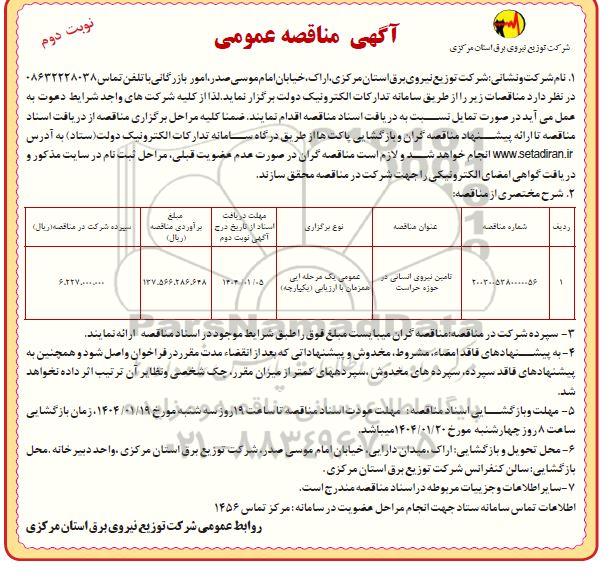 نوبت دوم
آگهی مناقصه عمومی
شرکت توزیع نیروی برق استان مرکزی
۱. نام شرکت و نشانی: شرکت توزیع نیروی برق استان مرکزی، اراک، خیابان امام موسی صدر، امور بازرگانی با تلفن تماس ۰۸۶۳۲۲۲۸۰۳۸
در نظر دارد مناقصات زیر را از طریق سامانه تدارکات الکترونیک دولت برگزار نماید. لذا از کلیه شرکت های واجد شرایط دعوت به
عمل می آید در صورت تمایل نسبت به دریافت اسناد مناقصه اقدام نمایند. ضمنا کلیه مراحل برگزاری مناقصه از دریافت اسناد
مناقصه تا ارائه پیشنهاد مناقصه گران و بازگشایی پاکت ها از طریق درگاه سامانه تدارکات الکترونیک دولت (ستاد) به آدرس
www.setadiran.ir انجام خواهد شد و لازم است مناقصه گران در صورت عدم عضویت قبلی، مراحل ثبت نام در سایت مذکور و
دریافت گواهی امضای الکترونیکی را جهت شرکت در مناقصه محقق سازند.
۲. شرح مختصری از مناقصه:
ردیف شماره مناقصه عنوان مناقصه نوع برگزاری مهلت دریافت اسناد از تاریخ درج آگهی نوبت دوم مبلغ برآوردی مناقصه (ریال) سپرده شرکت در مناقصه (ریال)
۱ ۲۰۰۳۰۰۵۳۸۰۰۰۰۰۵۶ تامین نیروی انسانی در حوزه حراست عمومی یک مرحله ایی همزمان با ارزیابی (یکپارچه) ۱۴۰۴/۰۱/۰۵ ۱۳۷.۵۶۶.۲۸۶.۶۴۸ ۶.۲۲۷.۰۰۰.۰۰۰
ParsNamadData
۳- سپرده شرکت در مناقصه: مناقصه گران میبایست مبلغ فوق را طبق شرایط موجود در اسناد مناقصه ارائه نمایند.
۴- به پیشنهادهای فاقد امضاء، مشروط، مخدوش و پیشنهاداتی که بعد از انقضاء مدت مقرر در فراخوان واصل شود و همچنین به
پیشنهادهای فاقد سپرده، سپرده های مخدوش، سپردههای کمتر از میزان مقرر، چک شخصی و نظایر آن ترتیب اثر داده نخواهد
شد.
۵- مهلت و بازگشایی اسناد مناقصه: مهلت عودت اسناد مناقصه تا ساعت ۱۹ روز سه شنبه مورخ ۱۴۰۴/۰۱/۱۹، زمان بازگشایی
ساعت ۸ روز چهارشنبه مورخ ۱۴۰۴/۰۱/۲۰ میباشد.
۰۲۱-۸۸۳۴۹۶۷۰-۵
۶- محل تحویل و بازگشایی: اراک، میدان دارایی، خیابان امام موسی صدر، شرکت توزیع برق استان مرکزی، واحد دبیرخانه. محل
بازگشایی: سالن کنفرانس شرکت توزیع برق استان مرکزی.
۷- سایر اطلاعات و جزییات مربوطه در اسناد مناقصه مندرج است.
اطلاعات تماس سامانه ستاد جهت انجام مراحل عضویت در سامانه: مرکز تماس ۱۴۵۶
روابط عمومی شرکت توزیع نیروی برق استان مرکزی